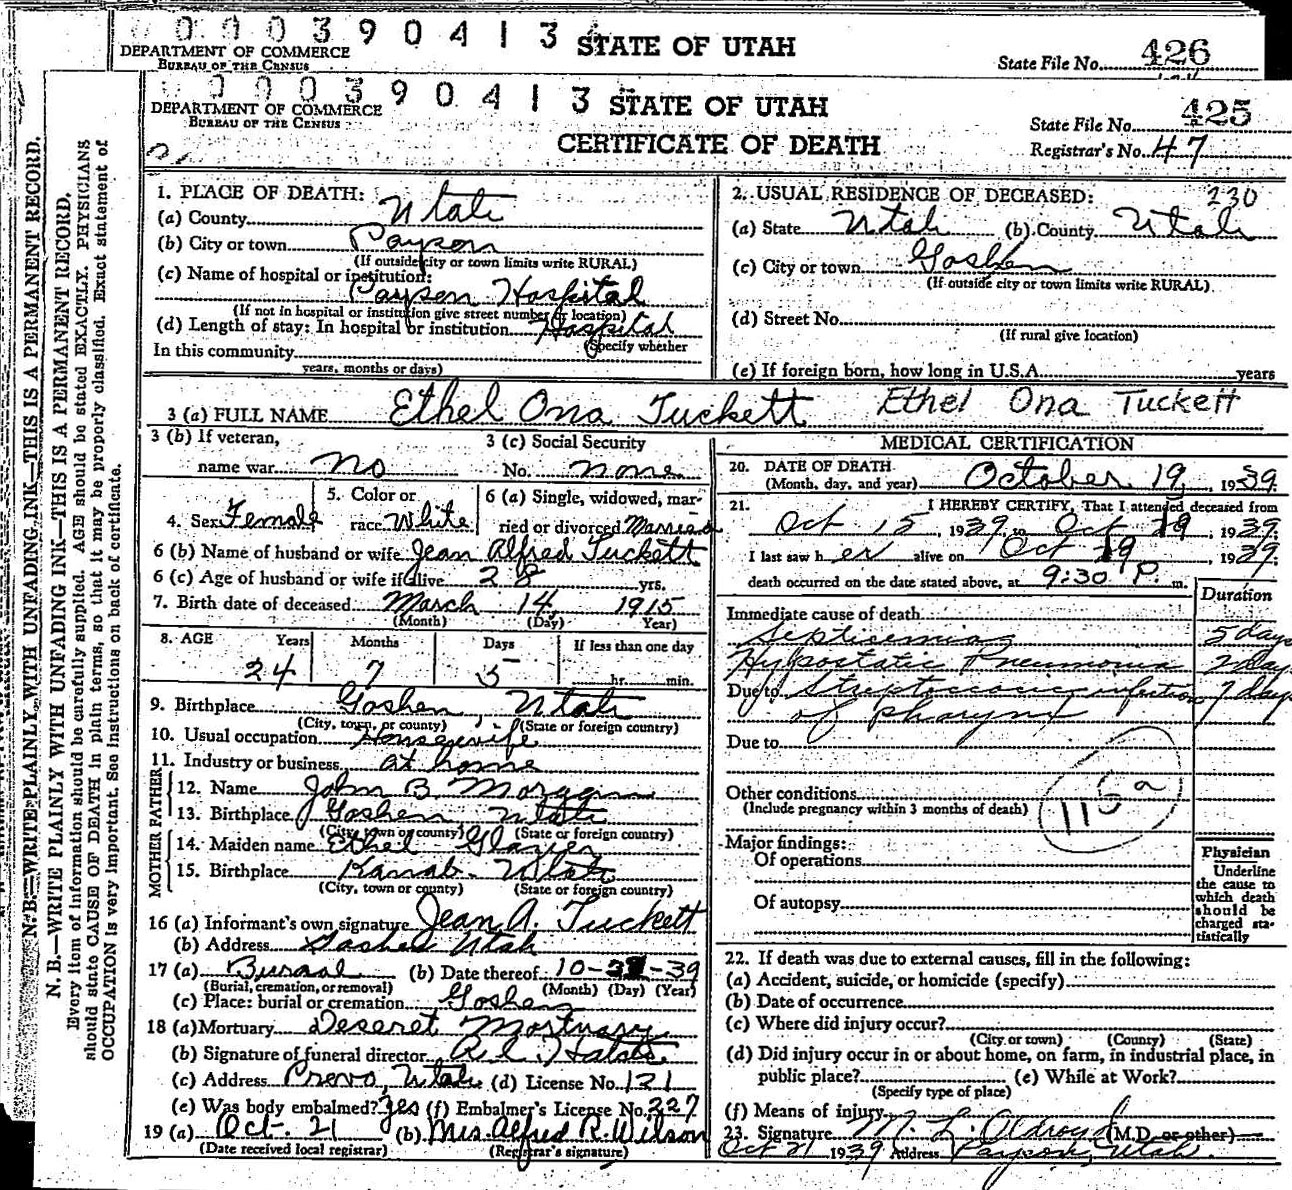 0 0 0 3 9 0 4 1 3
DEPARTMENT OF COMMERCE
BUREAU OF THE CENSUS
STATE OF UTAH
State File No. 426
0 0 0 3 9 0 4 1 3
DEPARTMENT OF COMMERCE
BUREAU OF THE CENSUS
STATE OF UTAH
CERTIFICATE OF DEATH
State File No. 425
Registrar's No. 47
N. B.—WRITE PLAINLY WITH UNFADING INK—THIS IS A PERMANENT RECORD.
N. B.—WRITE PLAINLY WITH UNFADING INK—THIS IS A PERMANENT RECORD.
Every item of information should be carefully supplied. AGE should be stated EXACTLY. PHYSICIANS
should state CAUSE OF DEATH in plain terms, so that it may be properly classified. Exact statement of
OCCUPATION is very important. See instructions on back of certificate.
1. PLACE OF DEATH:
(a) County Utah
(b) City or town Payson
(If outside city or town limits write RURAL)
(c) Name of hospital or institution:
Payson Hospital
(If not in hospital or institution give street number or location)
(d) Length of stay: In hospital or institution Hospital
(Specify whether
In this community
years, months or days)
2. USUAL RESIDENCE OF DECEASED: 230
(a) State Utah (b) County Utah
(c) City or town Goshen
(If outside city or town limits write RURAL)
(d) Street No.
(If rural give location)
(e) If foreign born, how long in U.S.A. years
3 (a) FULL NAME Ethel Ona Tuckett Ethel Ona Tuckett
3 (b) If veteran,
name war no
3 (c) Social Security
No. none
4. Sex Female
5. Color or
race White
6 (a) Single, widowed, mar-
ried or divorced Married
6 (b) Name of husband or wife Jean Alfred Tuckett
6 (c) Age of husband or wife if alive 28 yrs.
7. Birth date of deceased March 14 1915
(Month) (Day) Year)
8. AGE Years Months Days If less than one day
24 7 5 hr. min.
9. Birthplace Goshen, Utah
(City, town, or county) (State or foreign country)
10. Usual occupation Housewife
11. Industry or business at home
FATHER
12. Name John B. Morgan
13. Birthplace Goshen Utah
(City, town or county) (State or foreign country)
MOTHER
14. Maiden name Ethel Glazier
15. Birthplace Kanab Utah
(City, town or county) (State or foreign country)
16 (a) Informant's own signature Jean A. Tuckett
(b) Address Goshen Utah
17 (a) Burial (b) Date thereof 10- -39
(Burial, cremation, or removal) (Month) (Day) (Year)
(c) Place: burial or cremation Goshen
18 (a) Mortuary Deseret Mortuary
(b) Signature of funeral director
(c) Address Provo, Utah (d) License No. 121
(e) Was body embalmed? yes (f) Embalmer's License No. 227
19 (a) Oct. 21 (b) Mrs. Alfred R. Wilson
(Date received local registrar) (Registrar's signature)
MEDICAL CERTIFICATION
20. DATE OF DEATH October 19, 1939
(Month, day, and year)
21. I HEREBY CERTIFY, That I attended deceased from
Oct 15, 1939, to Oct 19, 1939.
I last saw her alive on Oct 19, 1939
death occurred on the date stated above, at 9:30 P. m.
Duration
Immediate cause of death
Septicemia 5 days
Hypostatic Pneumonia 2 days
Due to Streptococcic infection 7 days
of pharynx
Due to
Other conditions
(Include pregnancy within 3 months of death)
115a
Major findings:
Of operations
Of autopsy
Physician
Underline
the cause to
which death
should be
charged sta-
tistically
22. If death was due to external causes, fill in the following:
(a) Accident, suicide, or homicide (specify)
(b) Date of occurrence
(c) Where did injury occur?
(City or town) (County) (State)
(d) Did injury occur in or about home, on farm, in industrial place, in
public place? (e) While at Work?
(Specify type of place)
(f) Means of injury
23. Signature M. L. Oldroyd (M.D. or other)
Oct 21 1939 Address Payson, Utah.